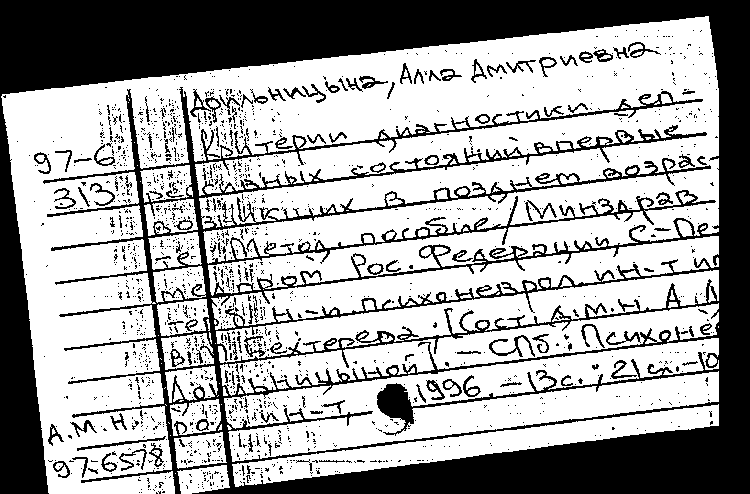 Доильницына, Алла Дмитриевна
97-6 Критерии диагностики деп-
313 рессивных состояний, впервые
возникших в позднем возрас-
те: Метод. пособие / Минздрав
медпром Рос. Федерации, С.-Пе-
терб. н.-и. психоневрол. ин-т им
В.М. Бехтерева; [Сост. д.м.н. А.Д.
Доильницыной]. - СПб.: Психонев
А.М.Н. рол. ин-т, 1996. - 13с.; 21см.-10
97-6578